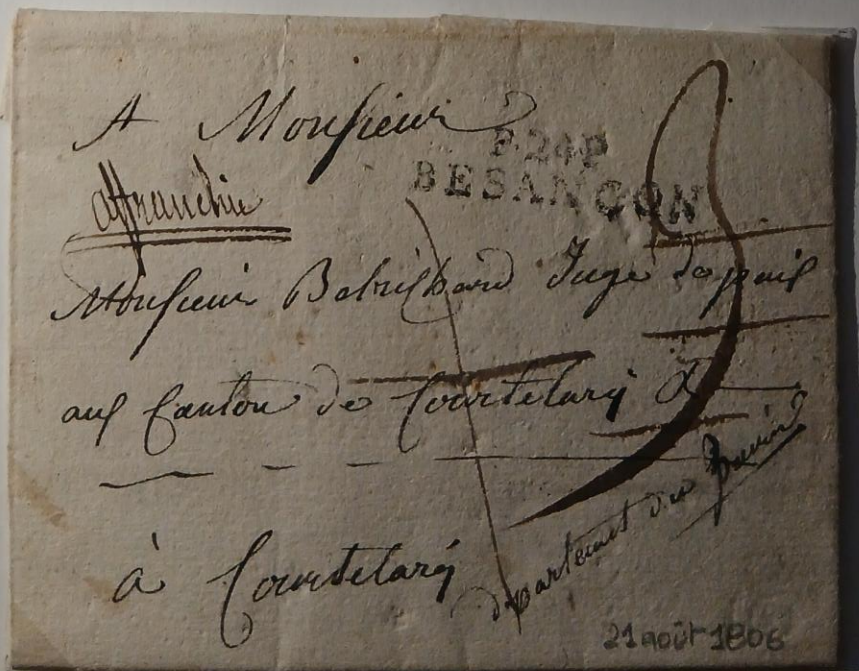 A Monsieur
P.24.P
BESANÇON
affranchie
Monsieur Belrichard Juge de paix
au Canton de Courtelary &
à Courtelary
departement du
21 août 1806